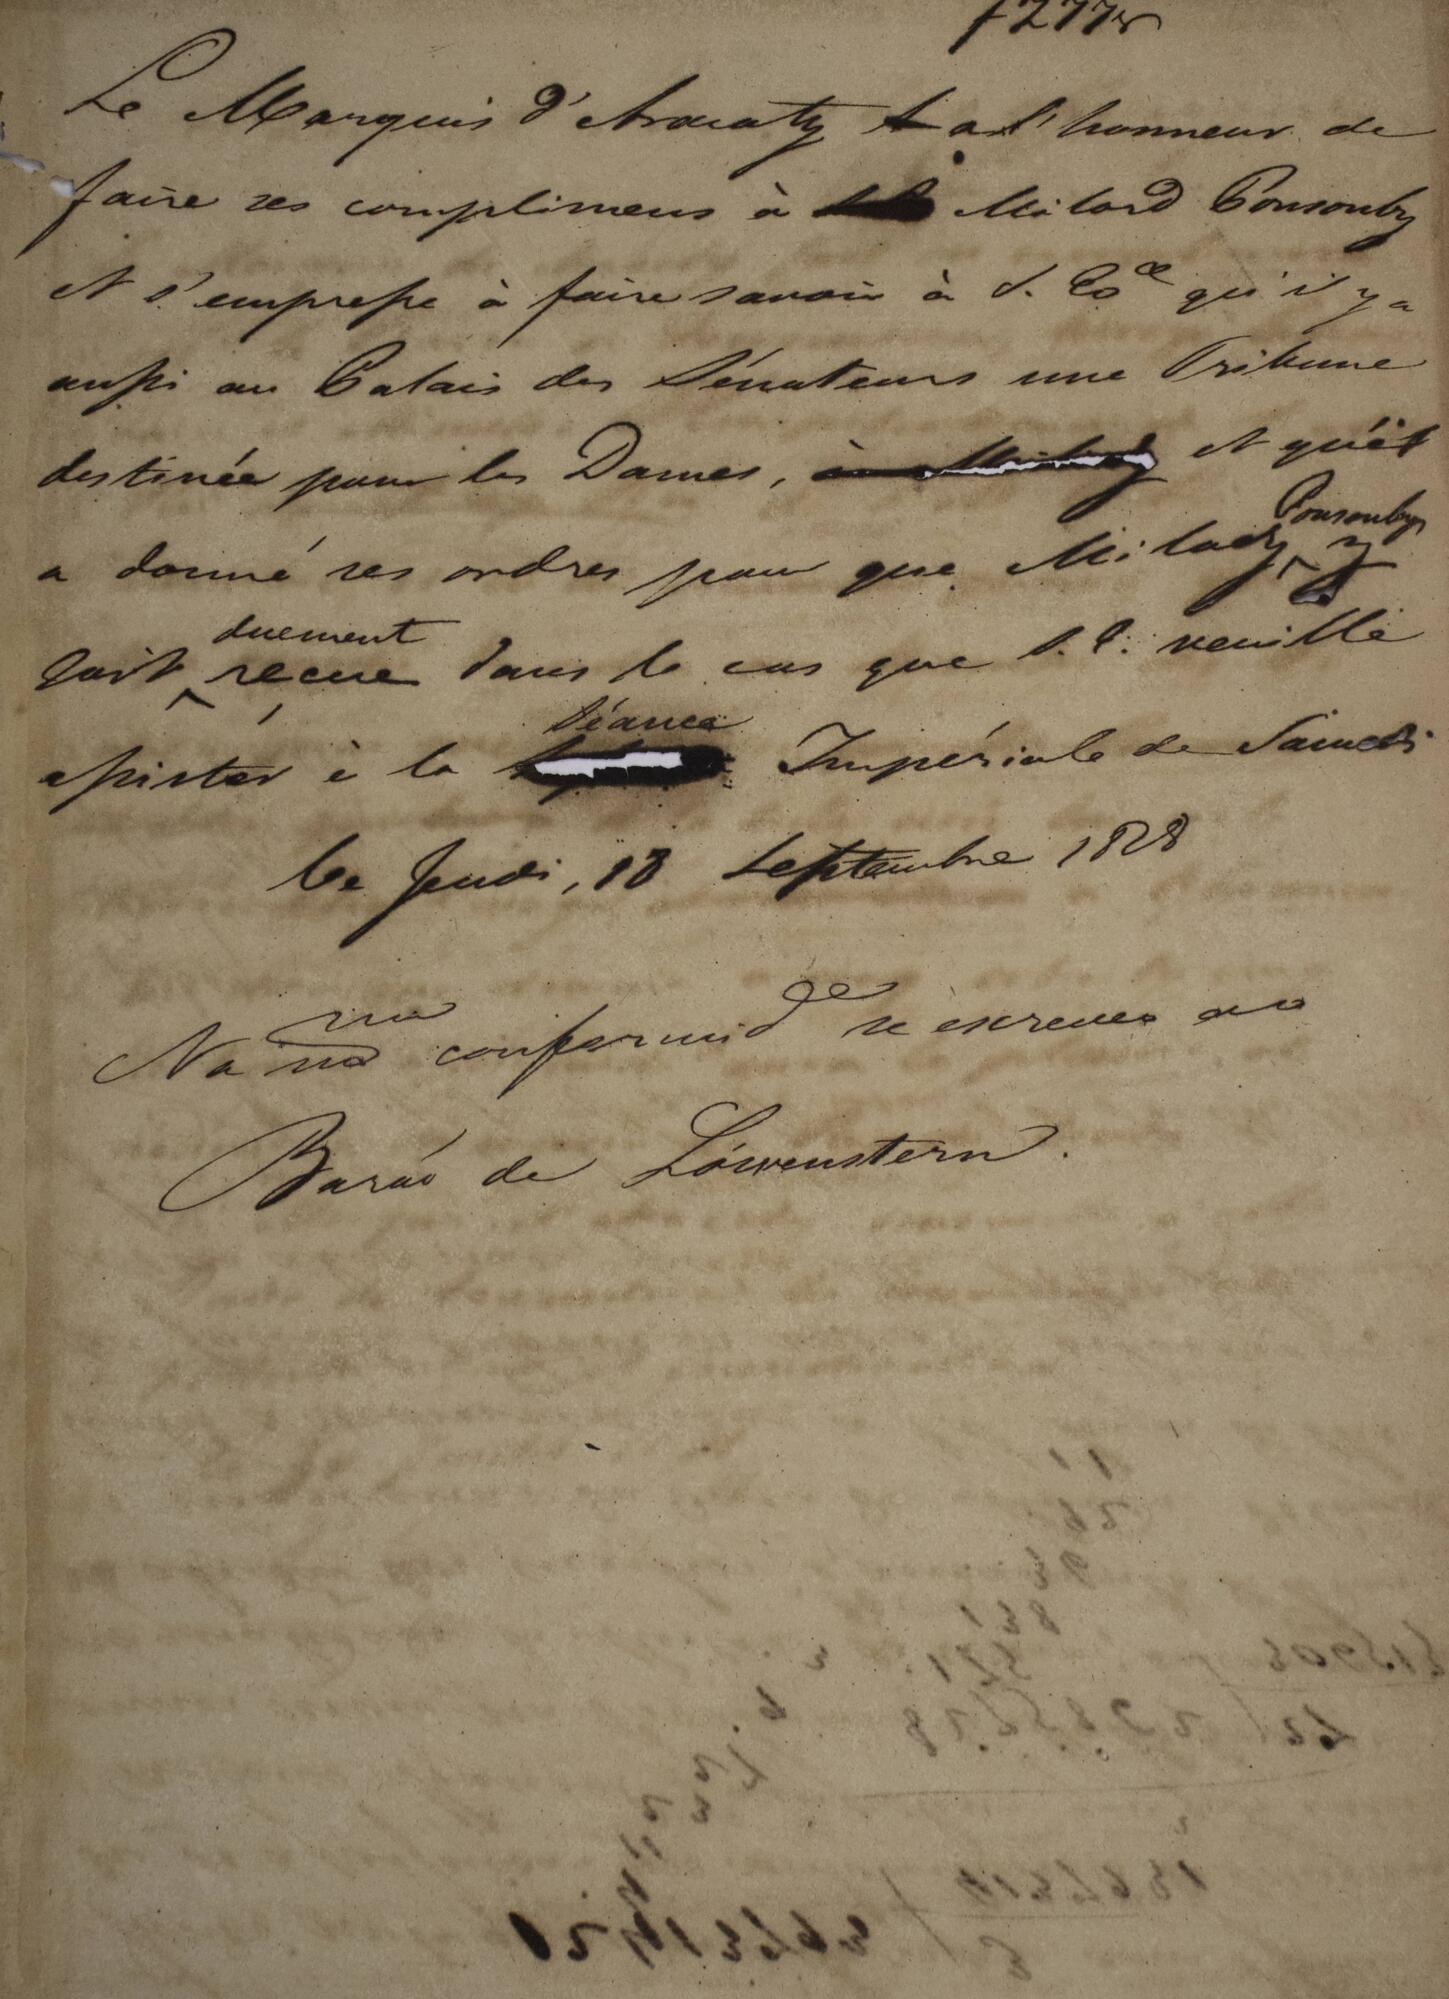 f277r
Le Marquis d'Aracaty a l'honneur de
faire ses complimens à Milord Ponsonby
et s'empresse à faire savoir à S. Ex.ce qu'il y a
aussi au Palais des Sénateurs une Tribune
destinée pour les Dames, et qu'il
a donné ses ordres pour que Milady Ponsonby
y
soit duement recue dans le cas que S. E. veuille
assister à la Séance Impériale de Samedi
le Jeudi, 18 Septembre 1828
Na ma conformid.de se escreveo ao
Barão de Löwenstern.